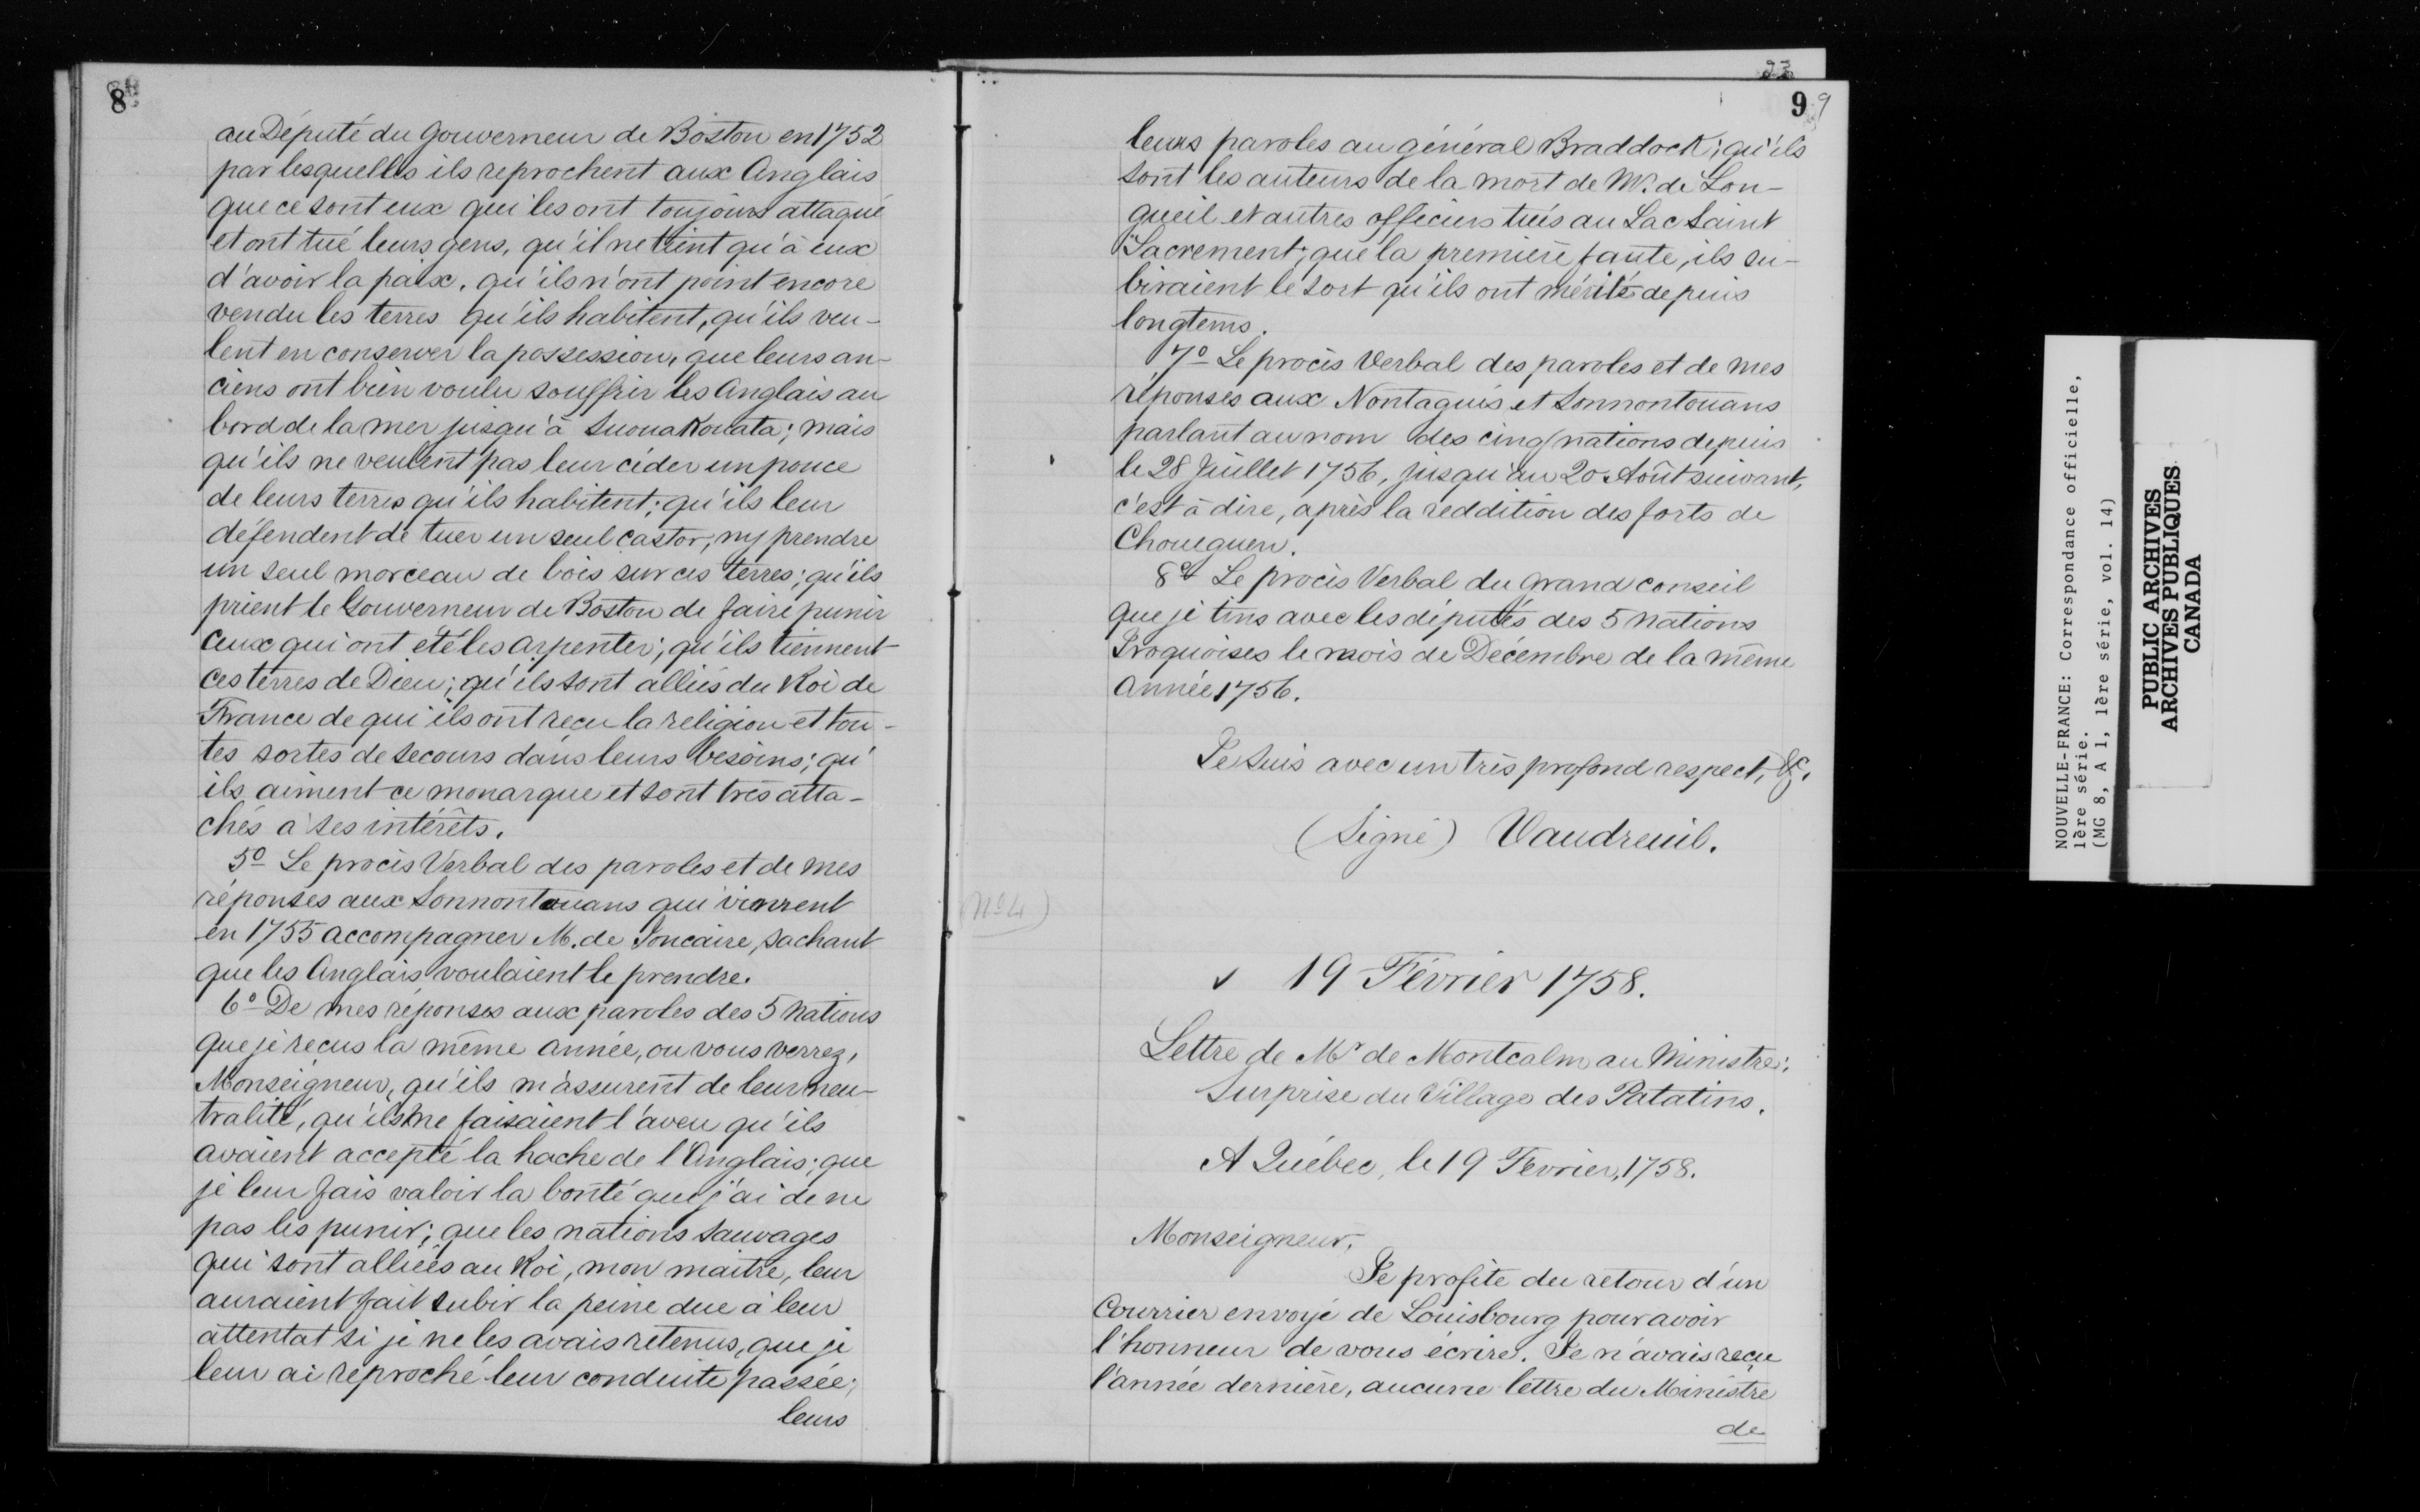 8
au Député du Gouverneur de Boston en 1752
par lesquelles ils reprochent aux Anglais
que ce sont eux qui les ont toujours attaqué
et ont tué leurs gens, qu'il ne tient qu'à eux
d'avoir la paix, qu'ils n'ont point encore
vendu les terres qu'ils habitent, qu'ils veu-
lent en conserver la possession, que leurs an-
ciens ont bien voulu souffrir les Anglais au
bord de la mer jusqu'à Suonakouata; mais
qu'ils ne veulent pas leur céder un pouce
de leurs terres qu'ils habitent; qu'ils leur
défendent de tuer un seul castor, ny prendre
un seul morceau de bois sur ces terres; qu'ils
prient le Gouverneur de Boston de faire punir
ceux qui ont été les arpenter; qu'ils tiennent
ces terres de Dieu; qu'ils sont alliés du Roi de
France de qui ils ont reçu la religion et tou-
tes sortes de secours dans leurs besoins; qu'
ils aiment ce monarque et sont très atta-
chés à ses intérêts.
5º Le procès Verbal des paroles et de mes
réponses aux Sonnontouans qui vinrent
en 1755 accompagner M. de Joncaire, sachant
que les Anglais voulaient le prendre.
6º De mes réponses aux paroles des 5 Nations
que je reçus la même année, ou vous verrez,
Monseigneur, qu'ils m'assurent de leur neu-
tralité, qu'ils me faisaient l'aveu qu'ils
avaient accepté la hache de l'Anglais; que
je leur fais valoir la bonté que j'ai de ne
pas les punir; que les nations sauvages
qui sont alliées au Roi, mon maitre, leur
auraient fait subir la peine due à leur
attentat si je ne les avais retenus, que je
leur ai reproché leur conduite passée;
leurs
23
9 9
leurs paroles au général Braddock; qu'ils
sont les auteurs de la mort de Mr. de Lon-
gueil et autres officiers tués au Lac Saint
Sacrement; que la première faute, ils su-
biraient le sort qu'ils ont mérité depuis
longtems.
7º Le procès Verbal des paroles et de mes
réponses aux Nontagués et Sonnontouans
parlant au nom des cinq nations depuis
le 28 Juillet 1756, jusqu'au 20 Août suivant,
c'est à dire, après la reddition des forts de
Choueguen.
8º Le procès Verbal du grand conseil
que je tins avec les députés des 5 nations
Iroquoises le mois de Décembre de la même
année 1756.
Je suis avec un très profond respect, &c.
(Signé) Vaudreuil.
(Nº 4)
19 Février 1758.
Lettre de Mr de Montcalm au Ministre;
Surprise du Village des Palatins.
A Québec, le 19 Fevrier, 1758.
Monseigneur,
Je profite du retour d'un
Courrier envoyé de Louisbourg pour avoir
l'honneur de vous écrire. Je n'avais reçu
l'année dernière, aucune lettre du Ministre
de
NOUVELLE-FRANCE: Correspondance officielle,
1ère série.
(MG 8, A 1, 1ère série, vol. 14)
PUBLIC ARCHIVES
ARCHIVES PUBLIQUES
CANADA